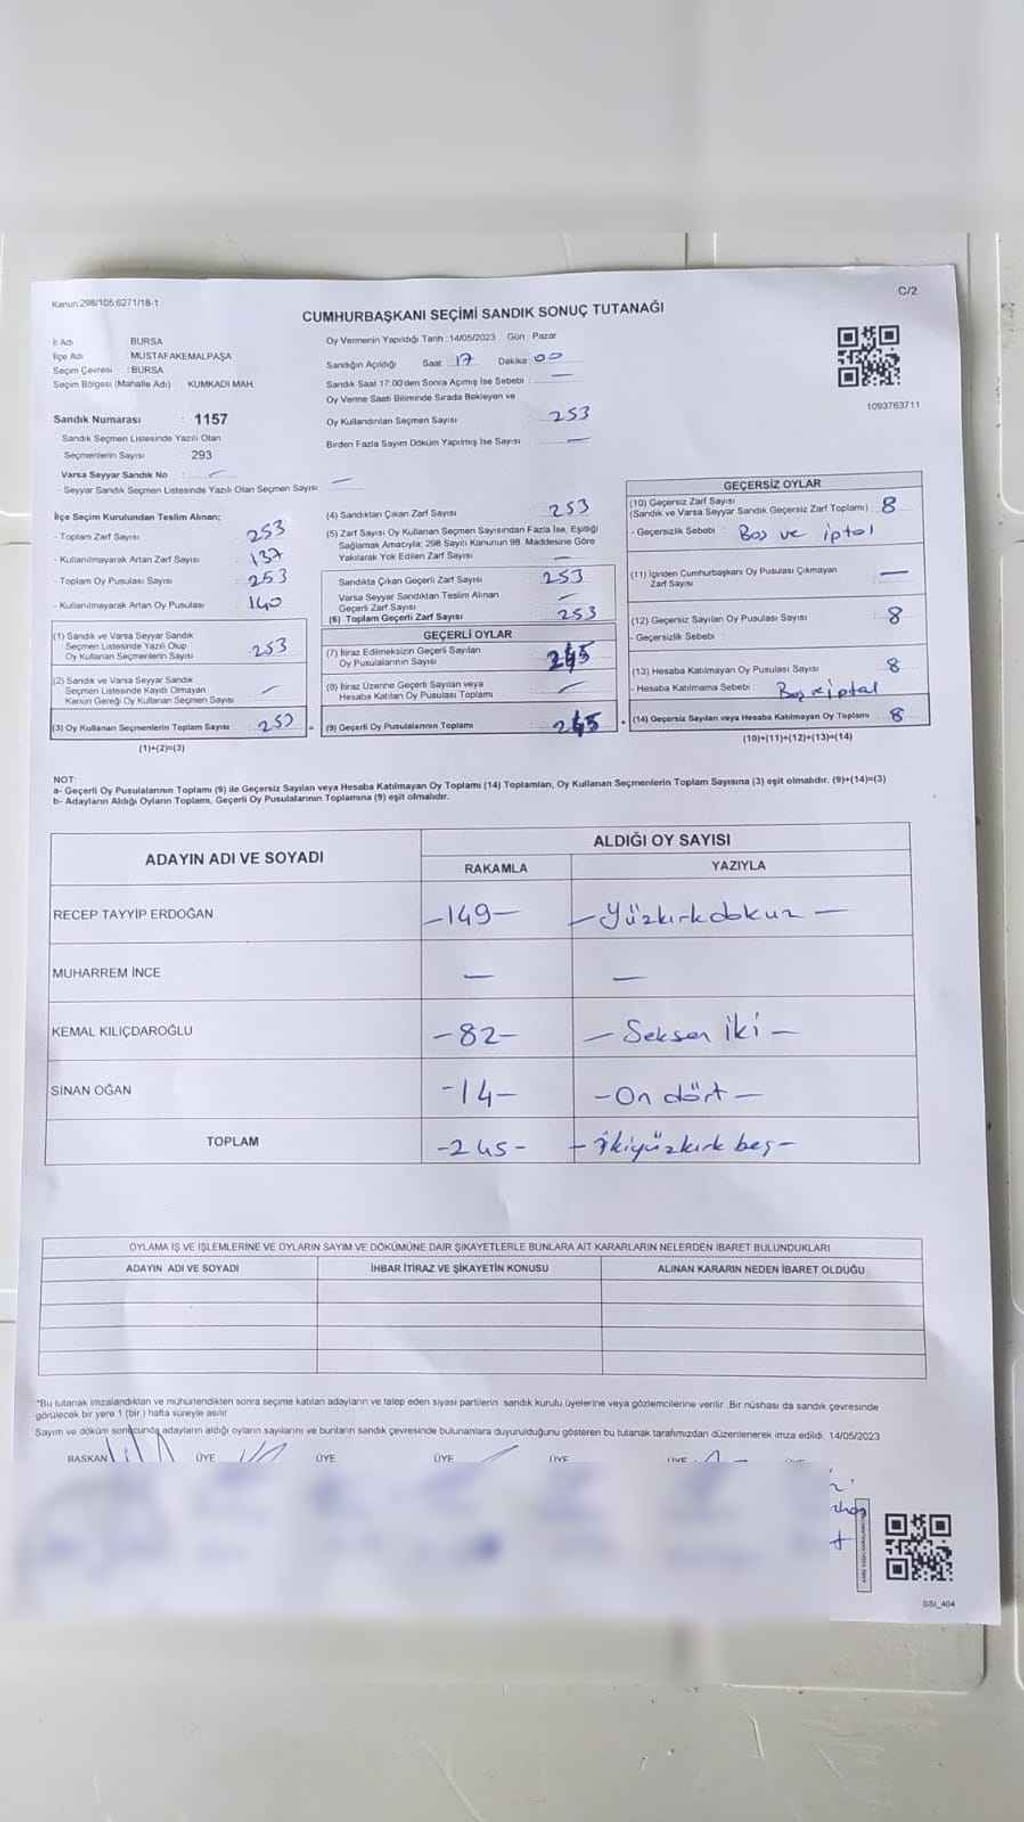 Kanun 298/105;6271/18-1
C/2
CUMHURBAŞKANI SEÇİMİ SANDIK SONUÇ TUTANAĞI
İl Adı : BURSA
İlçe Adı : MUSTAFAKEMALPAŞA
Seçim Çevresi : BURSA
Seçim Bölgesi (Mahalle Adı) KUMKADI MAH.
Sandık Numarası : 1157
Sandık Seçmen Listesinde Yazılı Olan
Seçmenlerin Sayısı 293
Varsa Seyyar Sandık No : —
Seyyar Sandık Seçmen Listesinde Yazılı Olan Seçmen Sayısı —
Oy Vermenin Yapıldığı Tarih :14/05/2023 Gün : Pazar
Sandığın Açıldığı Saat : 17 Dakika : 00
Sandık Saat 17:00'den Sonra Açılmış İse Sebebi : —
Oy Verme Saati Bitiminde Sırada Bekleyen ve
Oy Kullandırılan Seçmen Sayısı 253
Birden Fazla Sayım Döküm Yapılmış İse Sayısı —
1093763711
İlçe Seçim Kurulundan Teslim Alınan;
- Toplam Zarf Sayısı 253
- Kullanılmayarak Artan Zarf Sayısı 137
- Toplam Oy Pusulası Sayısı 253
- Kullanılmayarak Artan Oy Pusulası 140
(1) Sandık ve Varsa Seyyar Sandık
Seçmen Listesinde Yazılı Olup
Oy Kullanan Seçmenlerin Sayısı 253
(2) Sandık ve Varsa Seyyar Sandık
Seçmen Listesinde Kayıtlı Olmayan
Kanun Gereği Oy Kullanan Seçmen Sayısı —
(3) Oy Kullanan Seçmenlerin Toplam Sayısı 253
(1)+(2)=(3)
(4) Sandıktan Çıkan Zarf Sayısı 253
(5) Zarf Sayısı Oy Kullanan Seçmen Sayısından Fazla İse, Eşitliği
Sağlamak Amacıyla; 298 Sayılı Kanunun 98. Maddesine Göre
Yakılarak Yok Edilen Zarf Sayısı —
Sandıkta Çıkan Geçerli Zarf Sayısı 253
Varsa Seyyar Sandıktan Teslim Alınan
Geçerli Zarf Sayısı —
(6) Toplam Geçerli Zarf Sayısı 253
GEÇERLİ OYLAR
(7) İtiraz Edilmeksizin Geçerli Sayılan
Oy Pusulalarının Sayısı 245
(8) İtiraz Üzerine Geçerli Sayılan veya
Hesaba Katılan Oy Pusulası Toplamı —
= (9) Geçerli Oy Pusulalarının Toplamı 245
GEÇERSİZ OYLAR
(10) Geçersiz Zarf Sayısı
(Sandık ve Varsa Seyyar Sandık Geçersiz Zarf Toplamı) : 8
- Geçersizlik Sebebi : Boş ve iptal
(11) İçinden Cumhurbaşkanı Oy Pusulası Çıkmayan
Zarf Sayısı —
(12) Geçersiz Sayılan Oy Pusulası Sayısı 8
- Geçersizlik Sebebi
(13) Hesaba Katılmayan Oy Pusulası Sayısı 8
- Hesaba Katılmama Sebebi : Boş ve iptal
+ (14) Geçersiz Sayılan veya Hesaba Katılmayan Oy Toplamı 8
(10)+(11)+(12)+(13)=(14)
NOT:
a- Geçerli Oy Pusulalarının Toplamı (9) ile Geçersiz Sayılan veya Hesaba Katılmayan Oy Toplamı (14) Toplamları, Oy Kullanan Seçmenlerin Toplam Sayısına (3) eşit olmalıdır. (9)+(14)=(3)
b- Adayların Aldığı Oyların Toplamı, Geçerli Oy Pusulalarının Toplamına (9) eşit olmalıdır.
ADAYIN ADI VE SOYADI
ALDIĞI OY SAYISI
RAKAMLA YAZIYLA
RECEP TAYYİP ERDOĞAN -149- - Yüzkırkdokuz -
MUHARREM İNCE — —
KEMAL KILIÇDAROĞLU -82- - Seksen iki -
SİNAN OĞAN -14- - On dört -
TOPLAM -245- - ikiyüzkırk beş -
OYLAMA İŞ VE İŞLEMLERİNE VE OYLARIN SAYIM VE DÖKÜMÜNE DAİR ŞİKAYETLERLE BUNLARA AİT KARARLARIN NELERDEN İBARET BULUNDUKLARI
ADAYIN ADI VE SOYADI İHBAR İTİRAZ VE ŞİKAYETİN KONUSU ALINAN KARARIN NEDEN İBARET OLDUĞU
*Bu tutanak imzalandıktan ve mühürlendikten sonra seçime katılan adayların ve talep eden siyasi partilerin sandık kurulu üyelerine veya gözlemcilerine verilir. Bir nüshası da sandık çevresinde
görülecek bir yere 1 (bir ) hafta süreyle asılır
Sayım ve döküm sonucunda adayların aldığı oyların sayılarını ve bunların sandık çevresinde bulunanlara duyurulduğunu gösteren bu tutanak tarafımızdan düzenlenerek imza edildi. 14/05/2023
BAŞKAN ÜYE ÜYE ÜYE ÜYE ÜYE
SSI_404